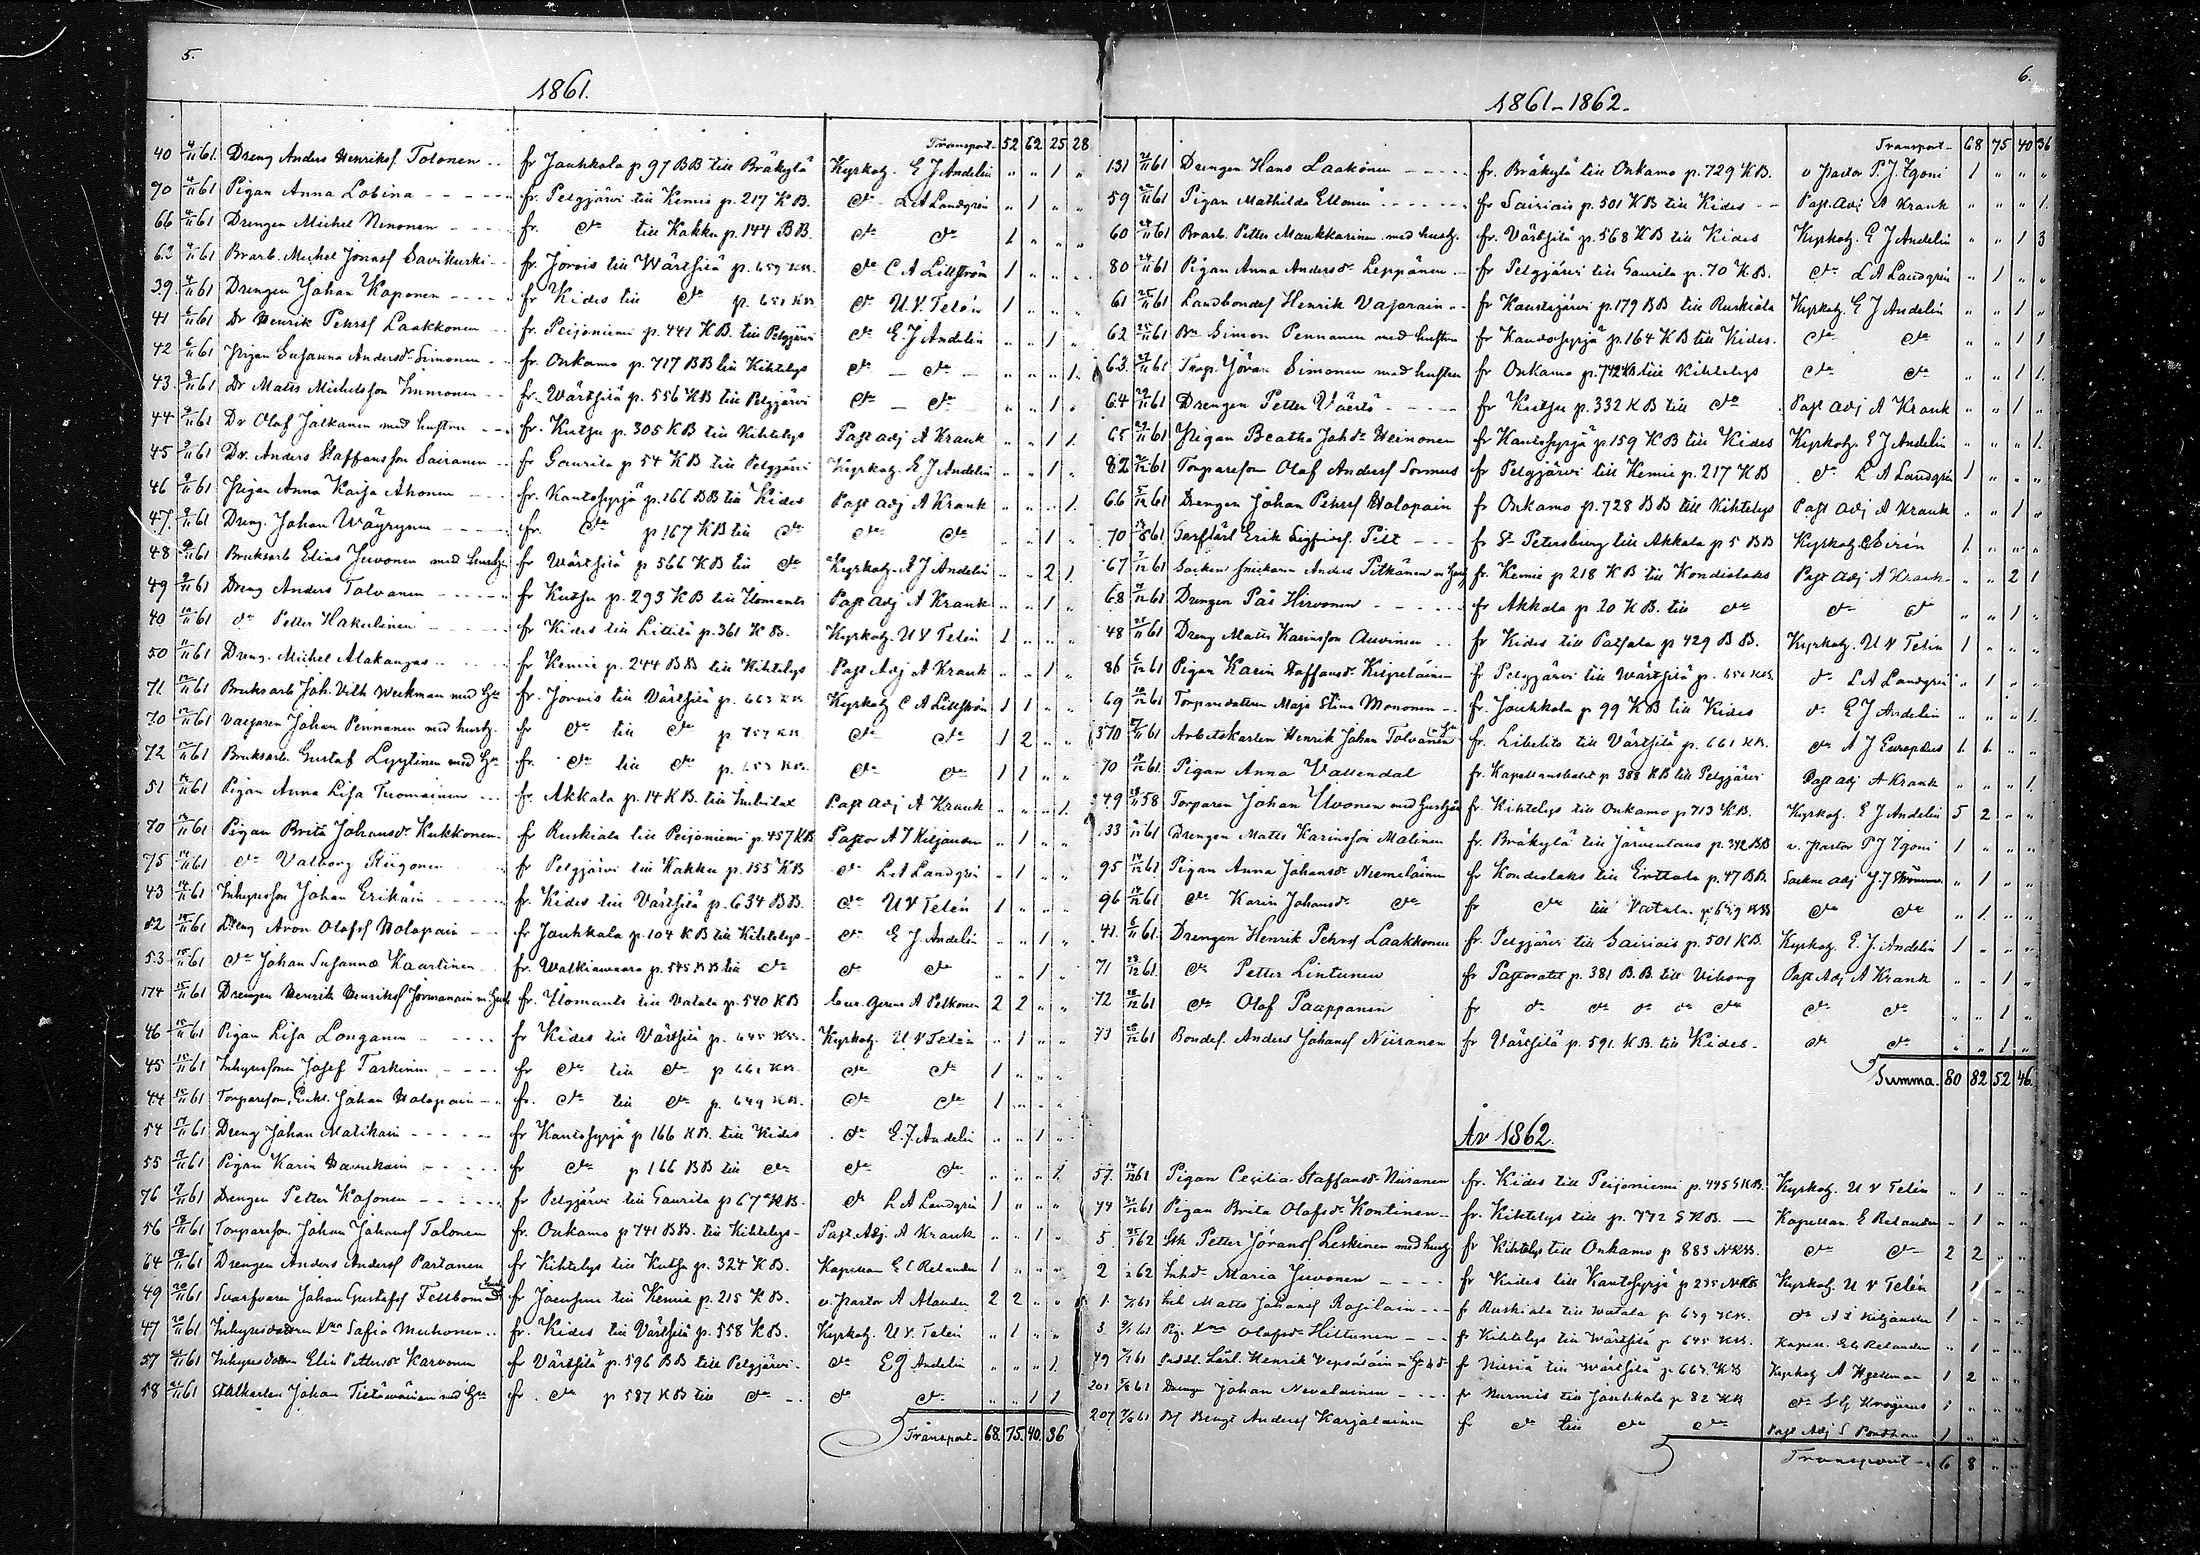 5.
1861.
Transport- 52 62 25 28
40 4/11 61. Dreng Anders Henrikss. Tolonen - - fr Jouhkola p. 97 BB till Bräkylä Kyrkohj. E J Andelin " " 1 "
70 4/11 61 Pigan Anna Lobina - - - - - fr. Pelgjärvi till Kemie p. 217 KB. do L A Landgrén " 1 " "
66 4/11 61 Drengen Michel Nenonen - - - fr. do till Kakku p. 144 BB. do do 1 " " "
63 4/11 61 Brarb. Michel Jonass Savikurki - - fr. Jorois till Wärtsilä p. 659 KB. do C A Lillström 1 " " "
39. 4/11 61 Drengen Johan Kaponen - - - - fr Kides till do p. 651 KB do U. V. Telén 1 " " "
41 6/11 61 Dr Henrik Pehrss Laakkonen - - fr. Peijoniemi p. 441 KB. till Pelgjärvi do E. J Andelin " " 1 "
42 6/11 61 Pigan Susanna Andersdr Simonen - - fr. Onkamo p. 717 BB till Kihtelys do - do - " " " 1.
43 9/11 61 Dr Matts Michelsson Immonen - - fr. Wärtsilä p. 556 KB till Pelgjärvi do - do " " 1 "
44 9/11 61 Dr Olof Jalkanen med hustru - - fr. Kutsu p. 305 KB till Kihtelys Past adj A Krank " " 1 1.
45 9/11 61 Dr. Anders Staffansson Sairanen - - fr Gaurila p. 54 KB till Pelgjärvi Kyrkohj. E J Andelin " " 1 "
46 9/11 61 Pigan Anna Kaisa Ahonen - - fr. Kantosyrjä p. 166 BB till Kides Past adj A Krank " " " 1.
47. 9/11 61 Dreng. Johan Wäyrynen - - - fr. do p. 167 KB till do do do " " 1 "
48 9/11 61 Bruksarb Elias Juvonen med hustr fr Wärtsilä p 566 KB till do Kyrkohj. E J Andelin " " 2 1.
49 9/11 61 Dreng Anders Tolvanen - - - - fr Kutsu p. 293 KB till Ilomants Past adj A Krank " " 1 "
40 10/11 61 do Petter Hakulinen - - - fr Kides till Littilä p. 361 KB. Kyrkohj. U V Telén 1 " " "
50 11/11 61 Dreng. Michel Alakangas - - - fr Kemie p. 244 BB till Kihtelys Past Adj A Krank " " 1 "
71 12/11 61 Bruksarb Joh. Vilh Weckman med Hu fr. Jorois till Värtsilä p. 663 KB Kyrkohj C A Lillström 1 1 " "
70 12/11 61 Valsaren Johan Pennanen med hustr. fr do till do p 757 KB do do 1 2 " "
72 12/11 61 Bruksarb Gustaf Lyytinen med Hu fr. do till do p. 653 KB. do do 1 1 " "
51 14/11 61 Pigan Anna Lisa Tuomainen - - - fr. Akkala p. 14 KB. till Imbilax Past adj A Krank " " " 1.
70 14/11 61 Pigan Brita Johansdr Kukkonen - fr Ruskiala till Peijoniemi p. 457 KB Pastor A J Kiljander " 1 " "
75 14/11 61 do Valborg Riigonen fr Pelgjärvi till Kakku p. 155 KB do L A Landgrén " 1 " "
43 14/11 61 Inhyresson Johan Erikäin - - - fr. Kides till Värtsilä p. 634 BB. do U V Telén 1 " " "
52 15/11 61 Dreng Aron Olofss Wolopain - - fr Jouhkala p. 104 KB till Kihtelys - do E J Andelin " " 1 "
53 15/11 61 do Johan Susannæ Kaartinen fr. Walkiawaara p. 545 BB till do do do " " 1 "
174 15/11 61 Drengen Henrik Henrikss Jormanain m hust fr. Ilomants till Vatala p. 540 KB A Pelkonen 2 2 " "
46 15/11 61 Pigan Lisa Longanen - - - - fr Kides till Värtsilä p. 645 KB. Kyrkohj. U V Telén " 1 " "
45 15/11 61 Inhyressonen Josef Tarkinen - - - fr do till do p 661 KB. do do 1 " " "
44 15/11 61 Torpareson, Enkl. Johan Wolopain - - fr. do till do p. 649 KB. do do 1 " " "
54 17/11 61 Dreng Johan Matikain - - - - - fr Kantosyrjä p 166 KB. till Kides do E. J. Andelin " " 1 "
55 17/11 61 Pigan Karin Havukain - - - - fr do p 166 BB till do do do " " " 1.
76 17/11 61 Drengen Petter Kosonen - - - - fr Pelgjärvi till Gaurila p 67 KB. do L A Landgrén 1 " " "
56 18/11 61 Torpareson Johan Johanss Tolonen fr. Onkamo p 741 BB. till Kihtelys - Past. Adj. A Krank " " 1 "
64 18/11 61 Drengen Anders Anderss Partanen fr Kihtelys till Kutsu p. 324 KB. Kapellan E C Relander 1 " " "
49 20/11 61 Svarfvaren Johan Gustafss Fellbom fr Joensuu till Kemie p. 215 KB. v. Pastor A Alander 2 2 " "
47 20/11 61 Inhyresdottren Xna Sofia Muhonen - - fr. Kides till Värtsilä p. 558 KB. Kyrkohj. U V. Telén " 1 " "
57 21/11 61 Inhyresdottren Elin Pettersdr Karvonen fr Värtsilä p. 596 BB till Pelgjärvi - do E J Andelin " " " 1.
58 21/11 61 Stålkarlen Johan Tietäwäinen med Hu fr. do p 587 KB till do - do do " " 1 1
Transport - 68. 75. 40. 36
6.
1861-1862.
Transport - 68 75 40 36
131 21/11 61 Drengen Hans Laakonen - - - - fr. Bräkylä till Onkamo p. 729 KB. v Pastor P. J. Ygoni 1 " " "
59 22/11 61 Pigan Mathilda Ellonen - - - - - fr Sairiais p. 501 KB till Kides - - Past. adj A Krank " " " 1.
60 24/11 61 Brarb. Petter Maukkarinen med hustr. fr. Värtsilä p. 568 KB till Kides Kyrkohj. E J Andelin " " 1 3
80 24/11 61 Pigan Anna Andersdr Leppänen - fr Pelgjärvi till Gaurila p. 70 KB. do L A Landgrén " 1 " "
61 25/11 61 Landbondes Henrik Vajarain - - fr Kaustajärvi p. 179 BB till Ruskiala Kyrkohj. E J Andelin " " 1 "
62 25/11 61 Bn Simon Pennanen med hustru fr Kandosyrjä p. 164 KB till Kides. do do " " 1 1
63. 27/11 61 Torp. Jöran Simonen med hustru fr Onkamo p. 742 KB till Kihtelys do do " " 1 1.
64 29/11 61 Drengen Petter Väertö - - - - fr Kutsu p. 332 KB till do Past adj A Krank " " 1 "
65 29/11 61 Pigan Beatha Johdr Heinonen fr Kantosyrjä p. 159 KB till Kides Kyrkohj. E J Andelin " " " 1.
82 2/12 61 Torpareson Olof Anderss Sormus fr Pelgjärvi till Kemie p. 217 KB do L A Landgrén 1 " " "
66 5/12 61 Drengen Johan Pehrss Wolopain fr Onkamo p. 728 BB till Kihtelys Past adj A Krank " " 1 "
70 Garf lärl Erik Sigfrids. Pitt - - - fr St Petersburg till Akkala p 5 BB Kyrkohj. Sirén 1. " " "
67 7/12 61 Socken snickaren Anders Pitkänen m hust fr. Kemie p 218 KB till Kondiolaks Past Adj A Krank - " " 2 1
68 7/12 61 Drengen Pål Hirvonen - - - - - fr Akkala p 20 KB. till do do do " " 1 "
48 21/11 61 Dreng Matts Karinsson Auvinen - - fr Kides till Patsola p 429 BB. Kyrkohj. U V Telén 1 " " "
86 6/12 61 Pigan Karin Staffansdr Kirpeläinen fr Pelgjärvi till Wärtsilä p. 656 KB. do L A Landgrén " 1 " "
69 10/12 61 Torparedottren Maja Stina Mononen - - fr. Jouhkola p 99 KB till Kides do E J Andelin " " " 1.
370 27/11 61 Arbetskarlen Henrik Johan Tolvanen fr. Libelits till Värtsilä p. 661 KB. do A J Europæus 1. 1. " "
70 61 Pigan Anna Vallendal fr. Kapellansbolet p 383 KB till Pelgjärvi Past adj A Krank " " " 1.
49 58 Torparen Johan Uvonen med hustru fr. Kihtelys till Onkamo p 713 KB. Kyrkohj. E J Andelin 5 2 " "
133 61 Drengen Matts Karinsson Malinen fr. Bräkylä till Järventaus p. 342 BB v. Pastor P J Ygoni 1 " " "
95 14/12 61 Pigan Anna Johansdr Niemeläinen fr Kondiolaks till Erttala p. 47 BB. Sockne adj J. J Strömmer " 1 " "
96 14/12 61 do Karin Johansdr do fr do till Vatala p. 649 KB do do " 1. " "
41. 6/11 61. Drengen Henrik Pehrss Laakkonen fr. Pelgjärvi till Sairiais p. 501 KB. Kyrkohj. E. J. Andelin 1 " " "
71 28/12 61. do Petter Lintunen fr Pastoratet p. 381 BB till Viborg Past Adj A Krank " " 1 "
72 28/12 61 do Olof Paappanen fr do do do do do do do " " 1 "
73 28/12 61 Bondes. Anders Johanss Niiranen fr Värtsilä p. 591. KB. till Kides - do do " " 1 "
Summa. 80 82 52 46.
År 1862.
57. 14/12 61 Pigan Cecilia Staffansdr Niiranen fr. Kides till Peijoniemi p. 445 S KB. Kyrkohj. U V Telén " 1 " "
74 61 Pigan Brita Olofsdr Kontinen - - fr. Kihtelys till p. 772 S KB. - Kapellan. E Relander " 1 " "
5 62 Petter Jöranss Leskinen med hustr fr Kihtelys till Onkamo p 883 NKB. do do 2 2 " "
2 62 Inhdr Maria Juvonen - - - - fr Kides till Kantosyrjä p 235 NKB Kyrkohj. U V Telén 1 " "
1. 61 Matts Johanss Rajilain - - - fr Ruskiala till Watala p 639 KB. do A J Kiljander 1 " " "
3. 61 Pig. Xna Olofsdr Hiltunen - - - fr Kihtelys till Wärtsilä p 645 KB. Kapell. E C Relander " 1 " "
49 61 Lärl. Henrik Vepsäläin fr Nilsiä till Wärtsilä p 663. KB Kyrkohj A Hjeltman 1 2 " "
201 61 Dreng Johan Nevalainen - - - - fr Nurmis till Jouhkola p 82 KB do S G Krogerus 1 " " "
207 61 Bengt Anderss Karjalainen fr do till do do Past Adj S 1 " " "
Transport - 6 8 " "